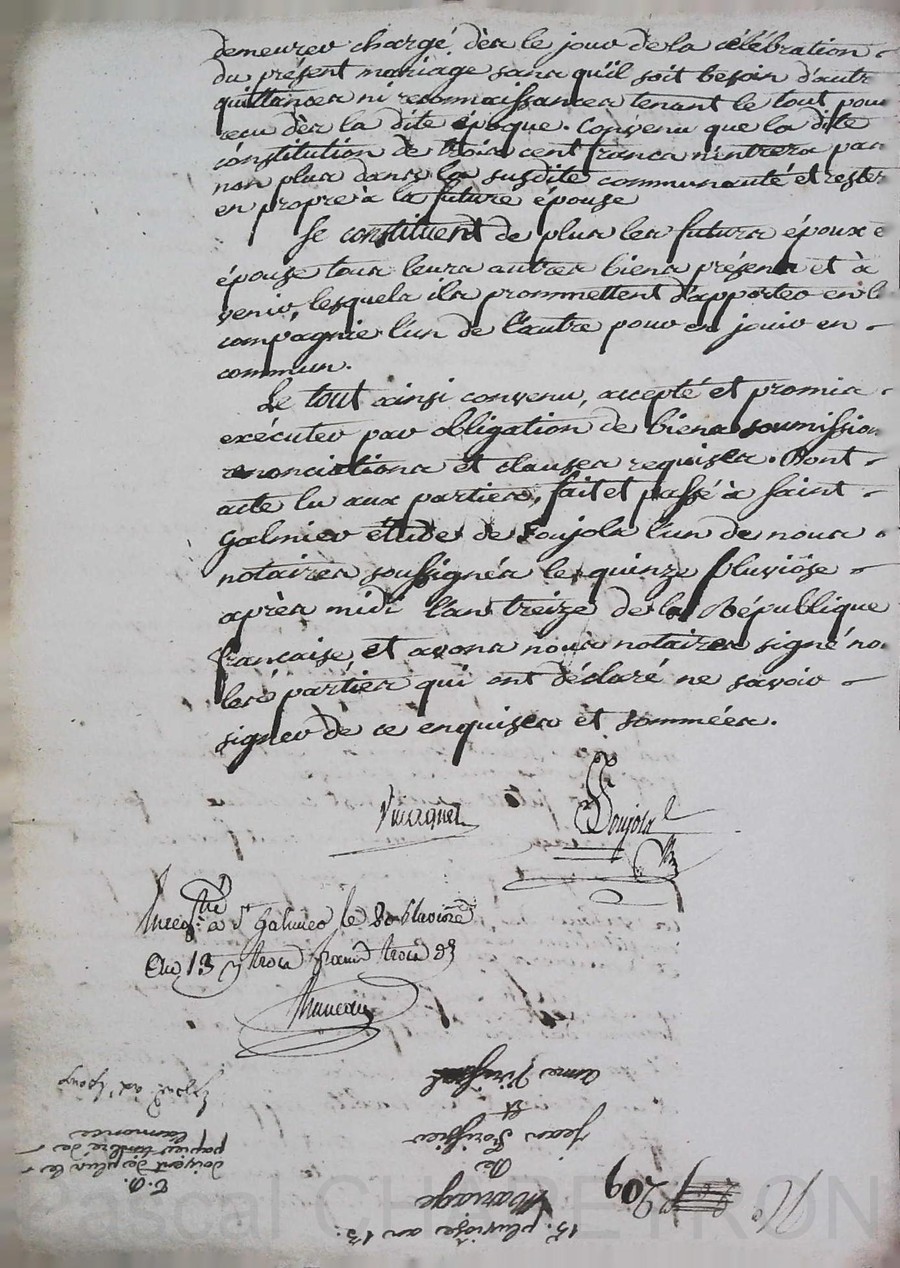 demeurer chargé, dès le jour de la célébration
du présent mariage sans qu'il soit besoin d'autr
quittances ni reconnaissances tenant le tout pour
recu dès la dite époque. Convenu que la dite
constitution de trois cent francs n'entrera pas
non plus dans la susdite communauté et rester
en propre à la future épouse
Se constituent de plus les futurs époux e
épouse tous leurs autres biens présens et à
venir, lesquels ils prommettent d'apporter en l
compagnie l'un de l'autre pour en jouir en
commun.
Le tout ainsi convenu, accepté et promis
exécuter par obligation de biens soumission
renonciations et clauses requises. Dont
acte lu aux parties, fait et passé à Saint
Galmier étude de Soujols l'un de nous
notaires soussignés le quinze pluviôse
après midi l'an treize de la République
française, et avons nous notaires signé no
les parties qui ont déclaré ne savoir
signer de ce enquises et sommées.
Soujols
à St Galmier le Pluviose
An 13 trois francs trois
15. pluviose an 13.
Mariage
de
Jean
et
anne
No 209
T. D.
doivent de plus le
papier timbré de